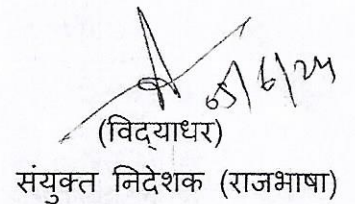 05/6/24
(विद्याधर)
संयुक्त निदेशक (राजभाषा)